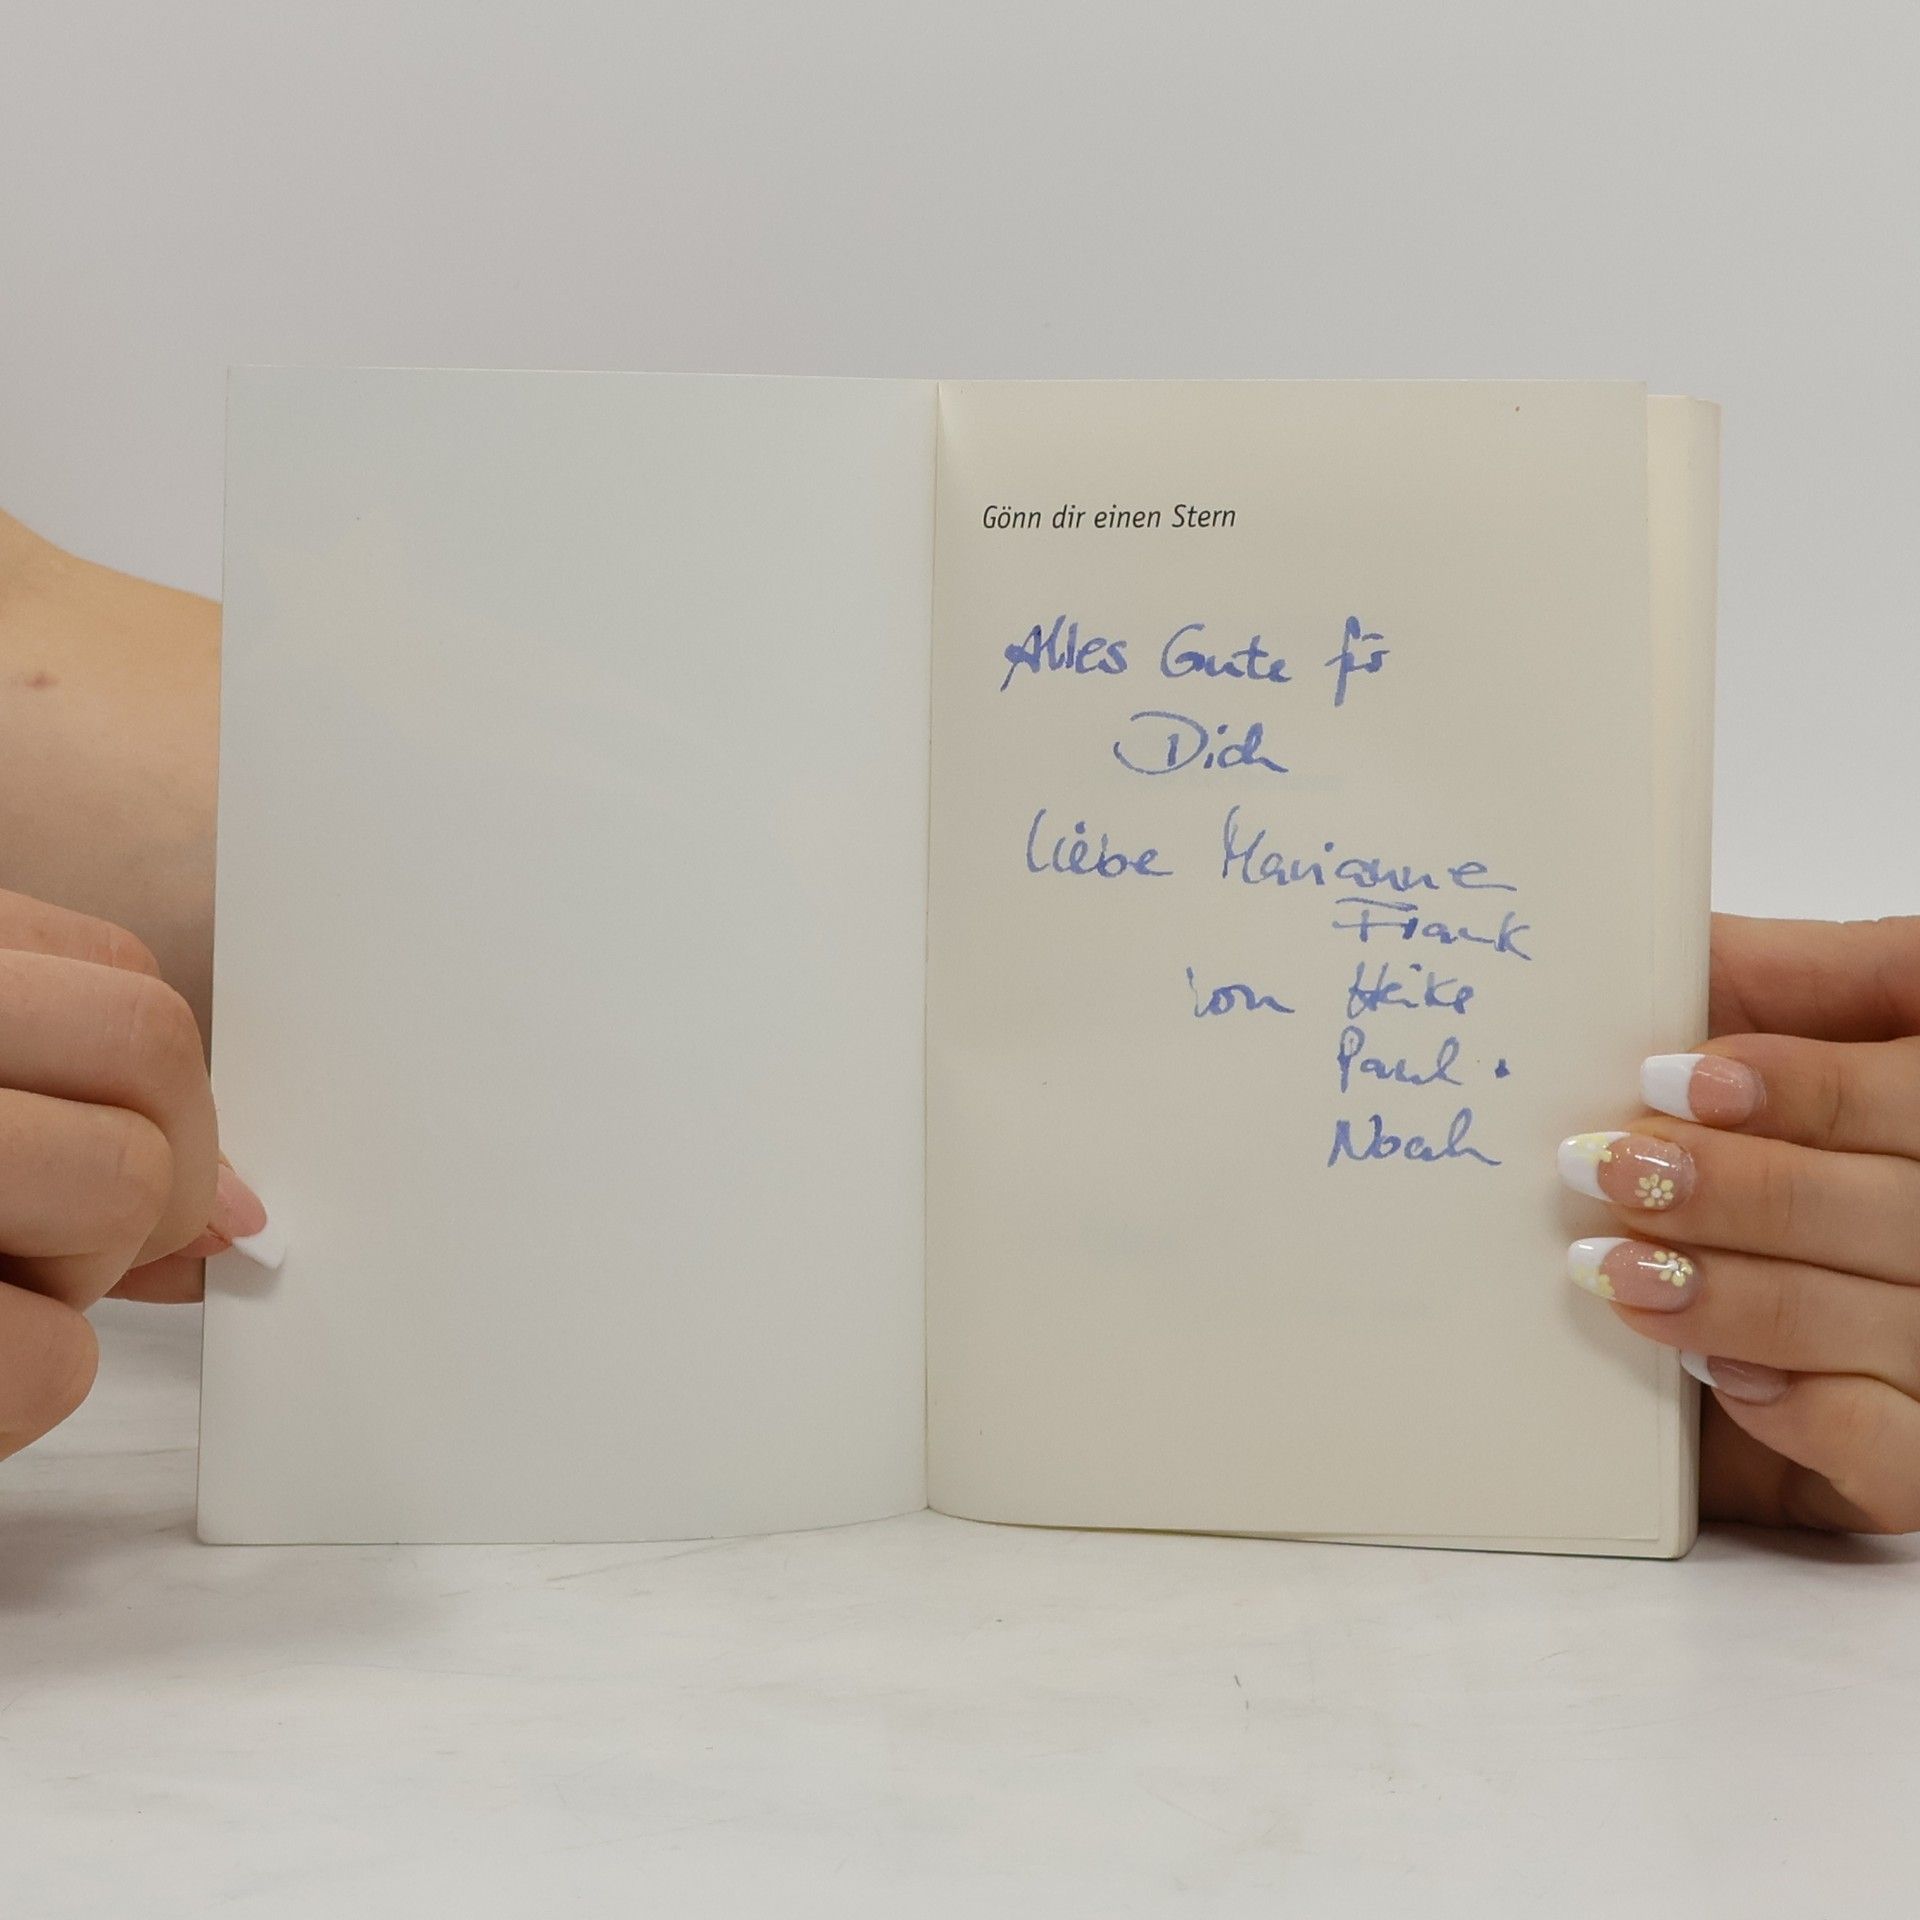 Gönn dir einen Stern
Alles Gute für
Dich
liebe Marianne
Frank
von Heike
Paul +
Noah